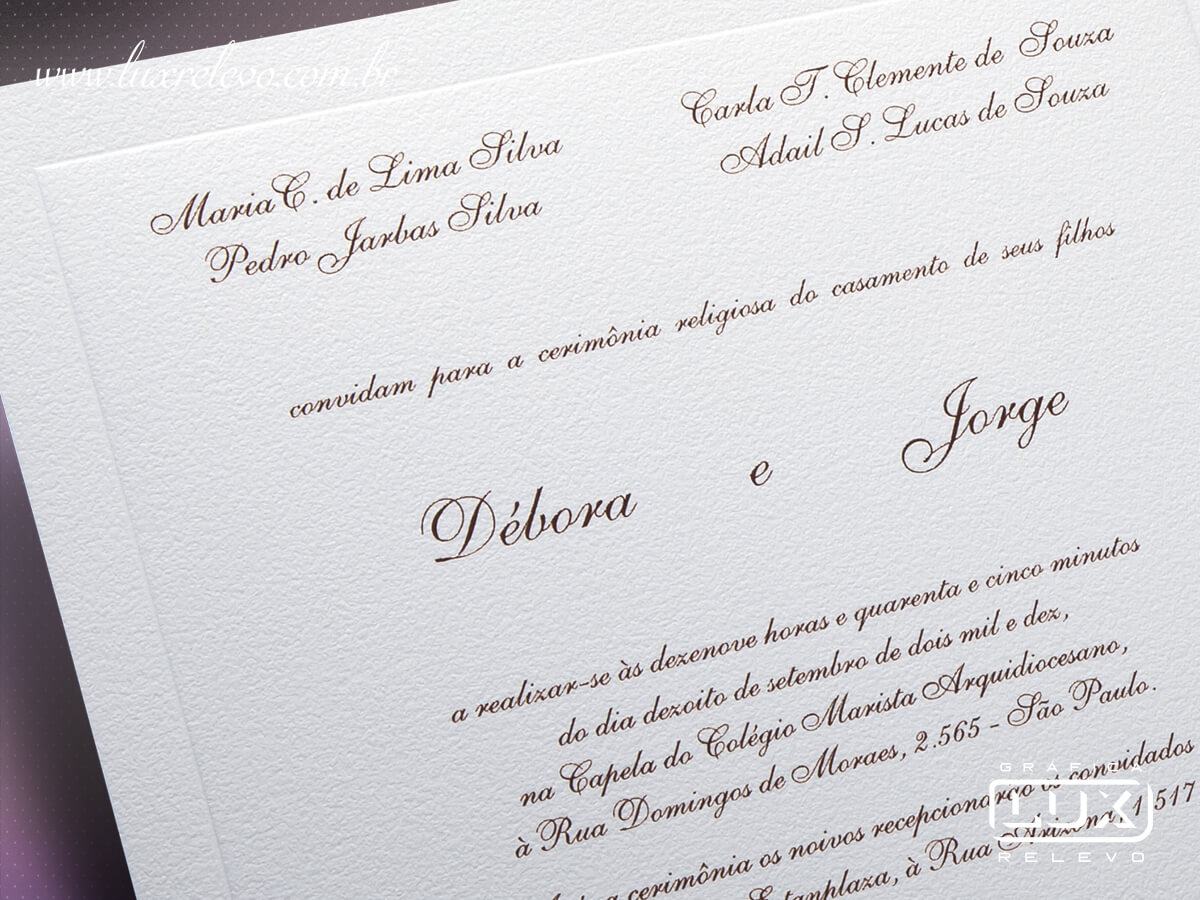 www.luxrelevo.com.br
Maria C. de Lima Silva
Pedro Jarbas Silva
Carla T. Clemente de Souza
Adail S. Lucas de Souza
convidam para a cerimônia religiosa do casamento de seus filhos
Débora e Jorge
a realizar-se às dezenove horas e quarenta e cinco minutos
do dia dezoito de setembro de dois mil e dez,
na Capela do Colégio Marista Arquidiocesano,
à Rua Domingos de Moraes, 2.565 - São Paulo.
a cerimônia os noivos recepcionarão os convidados
Estanplaza, à Rua Arizona, 1.517
GRAFICA
LUX
RELEVO